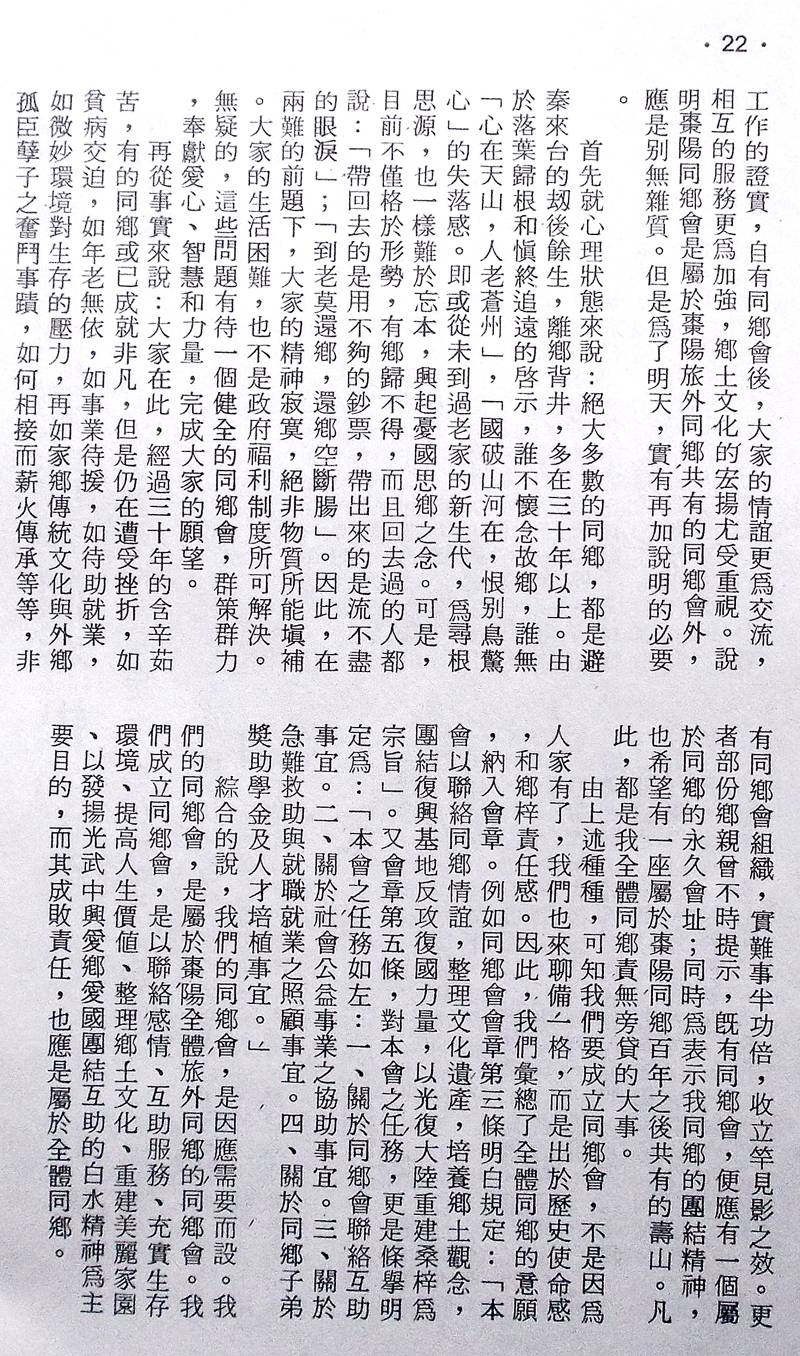 ·22·
工作的證實，自有同鄉會後，大家的情誼更爲交流，
相互的服務更爲加強，鄉土文化的宏揚尤受重視。說
明棗陽同鄉會是屬於棗陽旅外同鄉共有的同鄉會外，
應是別無雜質。但是爲了明天，實有再加說明的必要
。
首先就心理狀態來說：絕大多數的同鄉，都是避
秦來台的刼後餘生，離鄉背井，多在三十年以上。由
於落葉歸根和愼終追遠的啓示，誰不懷念故鄉，誰無
「心在天山，人老蒼州」，「國破山河在，恨別鳥驚
心」的失落感。即或從未到過老家的新生代，爲尋根
思源，也一樣難於忘本，興起憂國思鄉之念。可是，
目前不僅格於形勢，有鄉歸不得，而且回去過的人都
說：「帶回去的是用不夠的鈔票，帶出來的是流不盡
的眼淚」；「到老莫還鄉，還鄉空斷腸」。因此，在
兩難的前題下，大家的精神寂寞，絕非物質所能塡補
。大家的生活困難，也不是政府福利制度所可解決。
無疑的，這些問題有待一個健全的同鄉會，群策群力
，奉獻愛心、智慧和力量，完成大家的願望。
再從事實來說：大家在此，經過三十年的含辛茹
苦，有的同鄉或已成就非凡，但是仍在遭受挫折，如
貧病交迫，如年老無依，如事業待援，如待助就業，
如微妙環境對生存的壓力，再如家鄉傳統文化與外鄉
孤臣孽子之奮鬥事蹟，如何相接而薪火傳承等等，非
有同鄉會組織，實難事半功倍，收立竿見影之效。更
者部份鄉親曾不時提示，旣有同鄉會，便應有一個屬
於同鄉的永久會址；同時爲表示我同鄉的團結精神，
也希望有一座屬於棗陽同鄉百年之後共有的壽山。凡
此，都是我全體同鄉責無旁貸的大事。
由上述種種，可知我們要成立同鄉會，不是因爲
人家有了，我們也來聊備一格，而是出於歷史使命感
，和鄉梓責任感。因此，我們彙總了全體同鄉的意願
，納入會章。例如同鄉會會章第三條明白規定：「本
會以聯絡同鄉情誼，整理文化遺產，培養鄉土觀念，
團結復興基地反攻復國力量，以光復大陸重建桑梓爲
宗旨」。又會章第五條，對本會之任務，更是條舉明
定爲：「本會之任務如左：一、關於同鄉會聯絡互助
事宜。二、關於社會公益事業之協助事宜。三、關於
急難救助與就職就業之照顧事宜。四、關於同鄉子弟
獎助學金及人才培植事宜。」
綜合的說，我們的同鄉會，是因應需要而設。我
們的同鄉會，是屬於棗陽全體旅外同鄉的同鄉會。我
們成立同鄉會，是以聯絡感情、互助服務、充實生存
環境、提高人生價値、整理鄉土文化、重建美麗家園
、以發揚光武中興愛鄉愛國團結互助的白水精神爲主
要目的，而其成敗責任，也應是屬於全體同鄉。